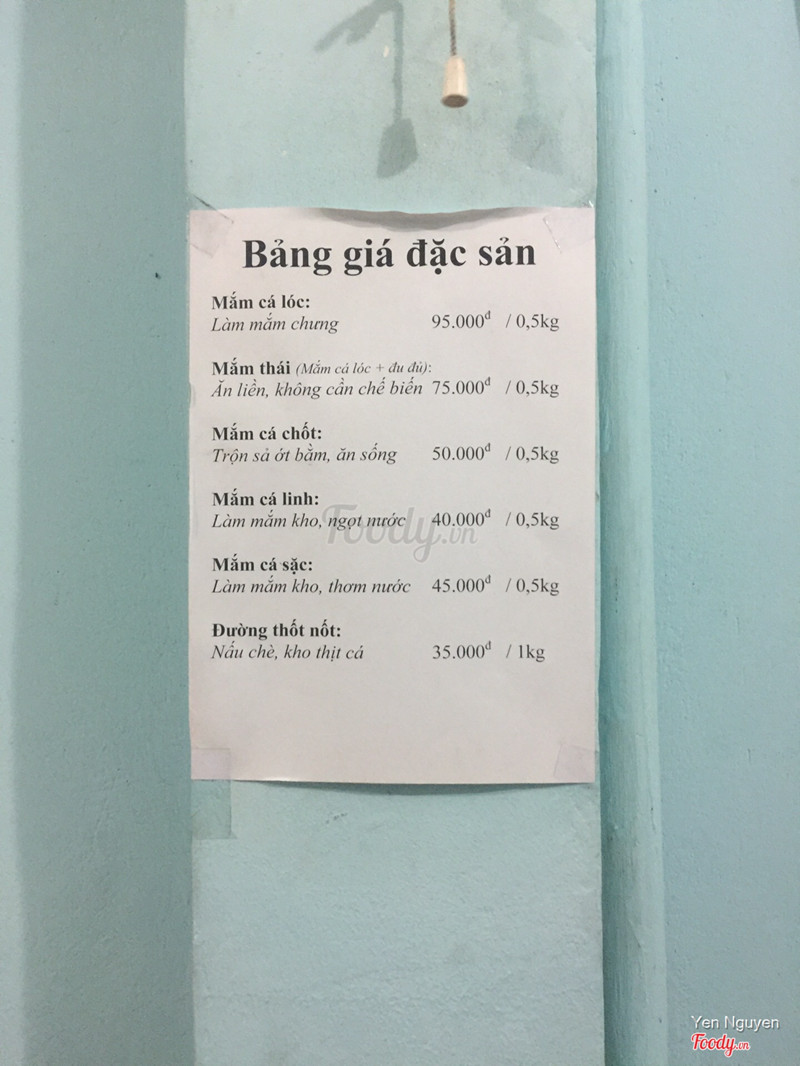 Bảng giá đặc sản
Mắm cá lóc:
Làm mắm chưng 95.000đ / 0,5kg
Mắm thái (Mắm cá lóc + đu đủ):
Ăn liền, không cần chế biến 75.000đ / 0,5kg
Mắm cá chốt:
Trộn sả ớt bằm, ăn sống 50.000đ / 0,5kg
Mắm cá linh:
Làm mắm kho, ngọt nước 40.000đ / 0,5kg
Foody.vn
Mắm cá sặc:
Làm mắm kho, thơm nước 45.000đ / 0,5kg
Đường thốt nốt:
Nấu chè, kho thịt cá 35.000đ / 1kg
Yen Nguyen
Foody.vn